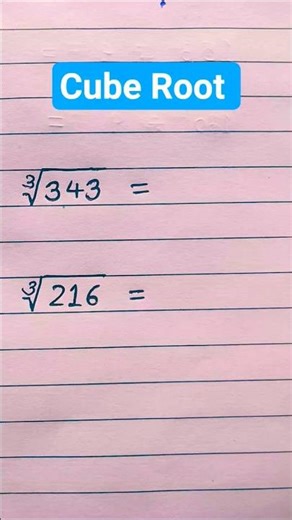 Cube Root
∛343 =
∛216 =